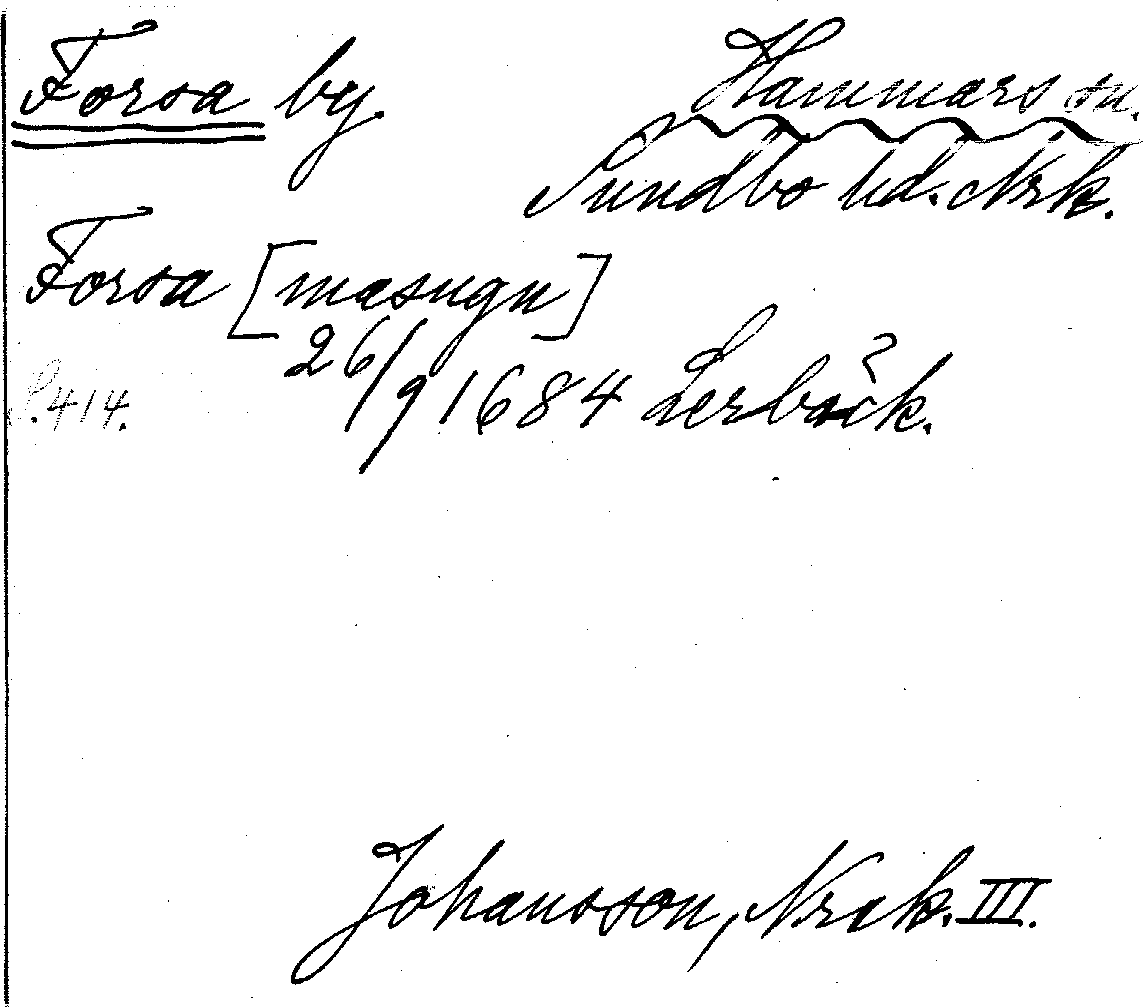 Forsa by. Hammars sn.
Sundbo hd. Nrk.
Forsa [masugn]
26/9 1684 Lerbäck.
S. 414.
Johansson, Nrak. III.